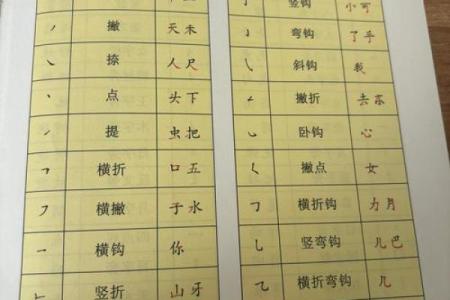 丿 撇 天未
㇏ 捺 人尺
丶 点 头下
提 虫把
𠃍 横折 口五
㇇ 横撇 于水
乛 横钩 你
竖折 山牙
亅 竖钩 小可
弯钩 了乎
㇂ 斜钩 我
撇折 去东
卧钩 心
𡿨 撇点 女
𠃌 横折钩 力月
乚 竖弯钩 儿巴
⺄ 横折弯钩 几